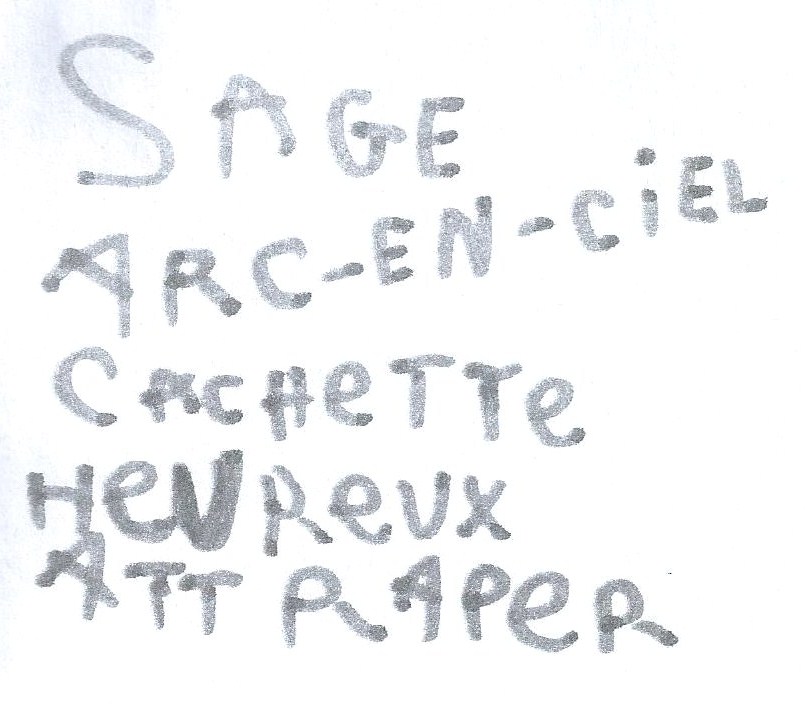 SAGE
ARC-EN-CiEL
CACHeTTe
HeUReUX
ATTRAPeR